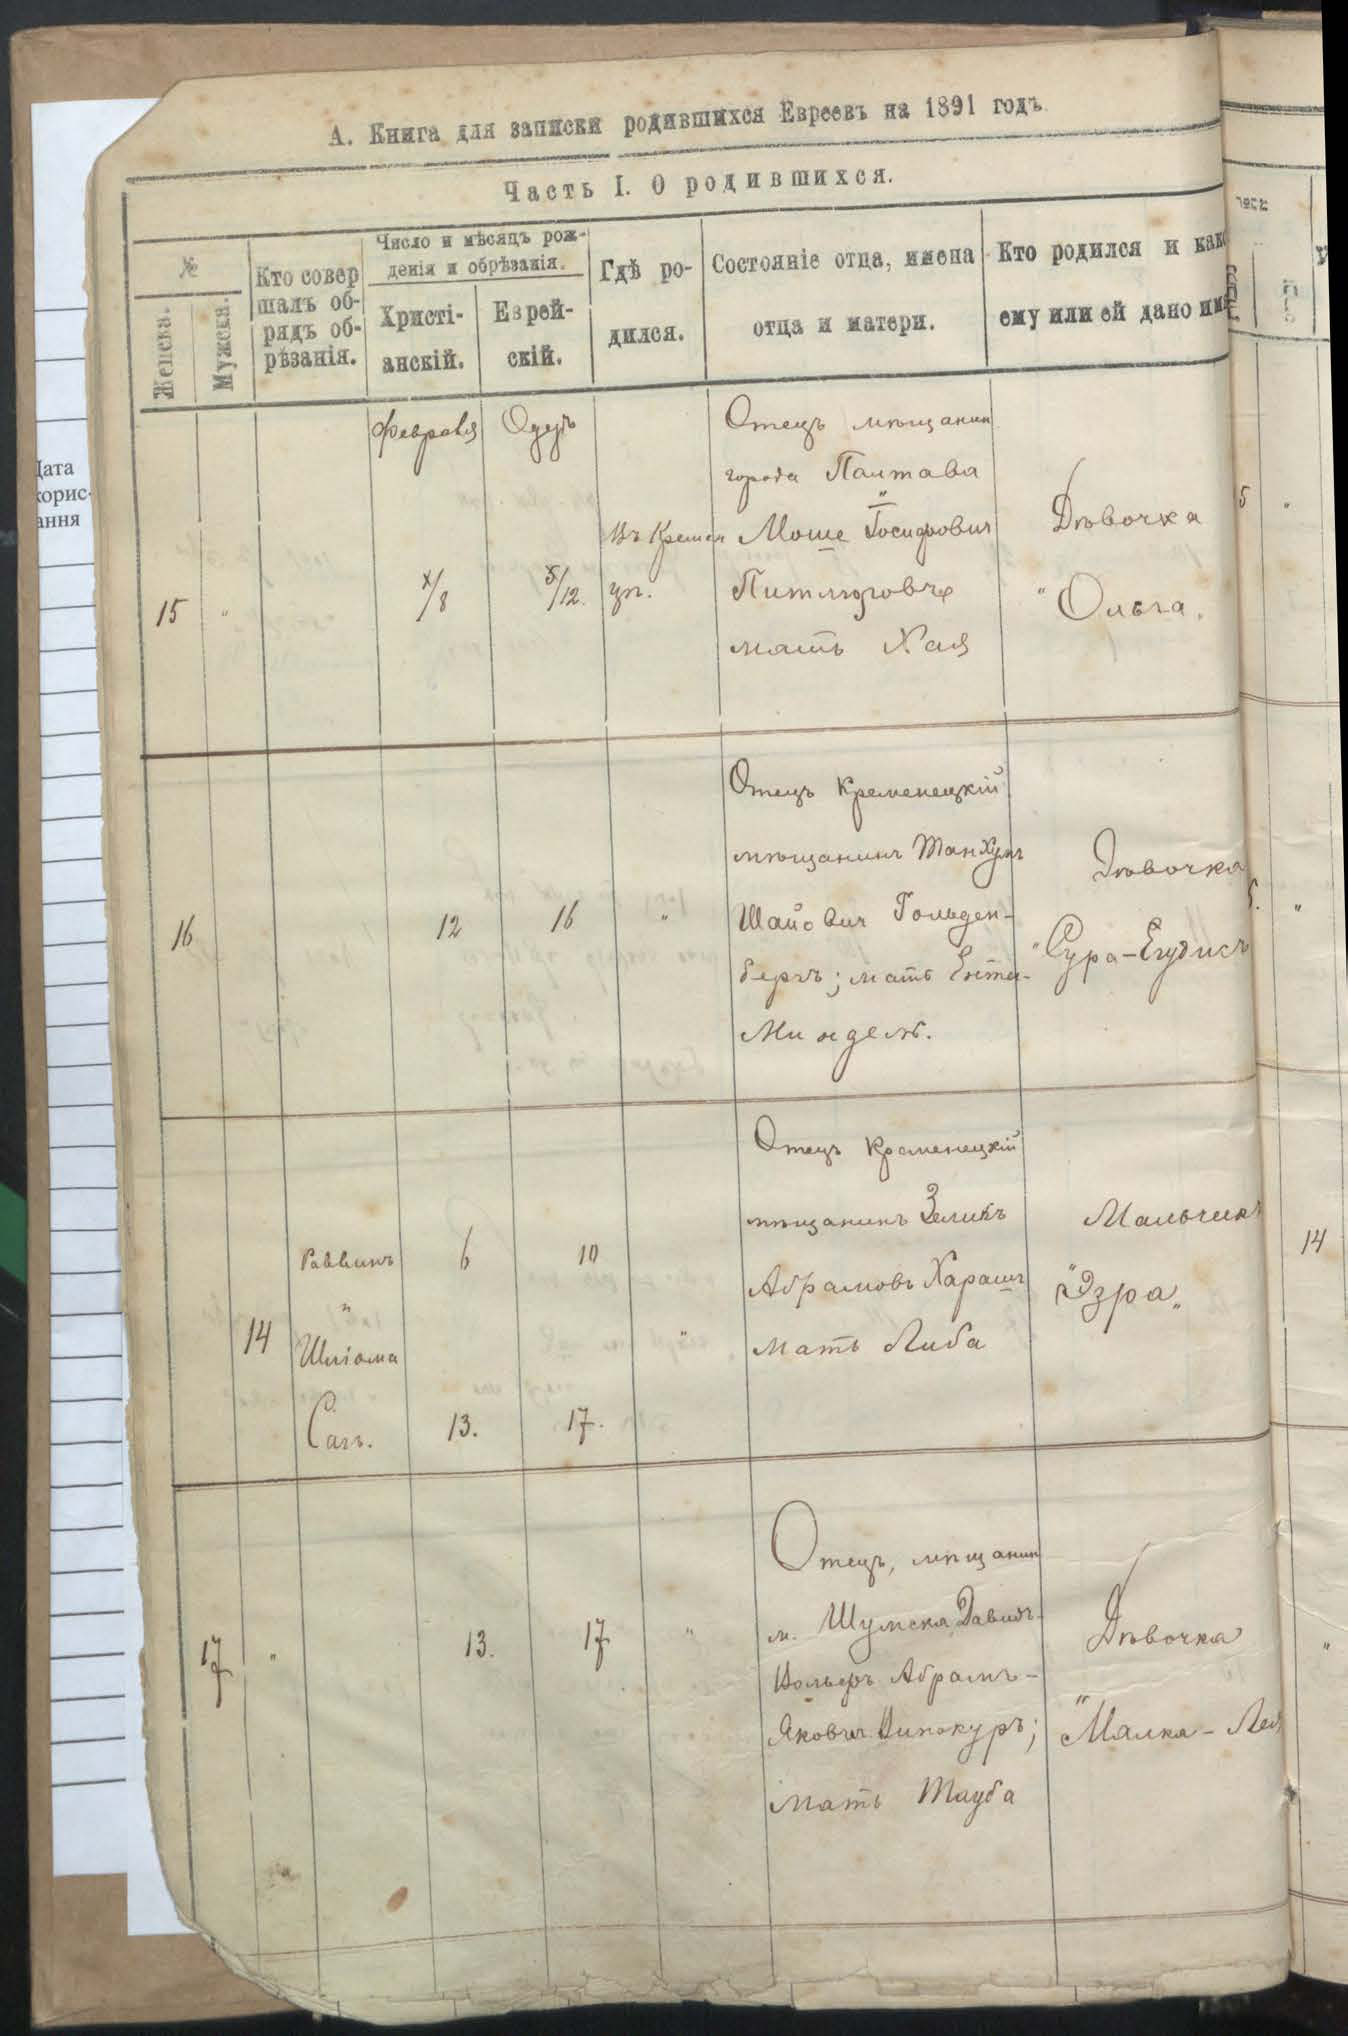 А. Книга для записки родившихся Евреевъ на 1891 годъ
Часть I. О родившихся.
№
Женска.
Мужска.
Кто совер
шалъ об-
рядъ об-
рѣзанія.
Число и мѣсяцъ рож-
денія и обрѣзанія.
Христі-
анскій.
Еврей-
скій.
Гдѣ ро-
дился.
Состояніе отца, имена
отца и матери.
Кто родился и како
ему или ей дано имя
Дата
корис-
ання
15
"
Февраля
8
12.
Въ Кремен
цѣ.
Отецъ мѣщанин
города Полтава
Моше
мать Хая
Дѣвочка
"Ольга.
5
"
16
12
16
"
Отецъ Кременецкій
мѣщанинъ Танхумъ
Шайовичъ Гольден-
бергъ; мать Ента-
Миндель.
Дѣвочка
"Сура-Егудисъ
"
14
Раввинъ
"
Шліома
Сагъ.
6
10
13.
17.
"
Отецъ Кременецкій
мѣщанинъ Зеликъ
Абрамовъ Харашъ
мать Либа
Мальчикъ
"Эзра"
14
17
"
13.
17
"
Отецъ, мѣщанин
м. Шумска Давидъ-
Вольфъ Абрамъ-
Яковичъ Винокуръ;
мать Тауба
Дѣвочка
"Малка-Лея
"